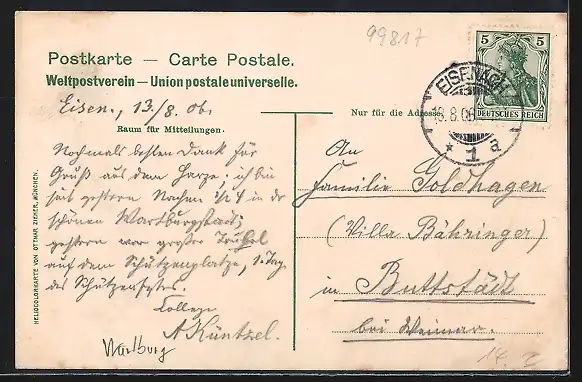 99817
Postkarte — Carte Postale.
Weltpostverein — Union postale universelle.
Eisen., 13/8. 06.
Raum für Mitteilungen.
Nochmals besten Dank für
Gruß aus dem Harze; ich bin
seit gestern Nachm. 1/2 4 in der
schönen Wartburgstadt;
gestern war großer Trubel
auf dem Schützenplatze, 1. Tag
des Schützenfestes.
Kollege
A. Küntzel.
Wartburg
HELIOCOLORKARTE VON OTTMAR ZIEHER, MÜNCHEN.
5 5
DEUTSCHES REICH
EISENACH
13.8.06
* 1 a
Nur für die Adresse.
An
Familie Goldhagen
(Villa Bähringer)
in Buttstädt
bei Weimar.